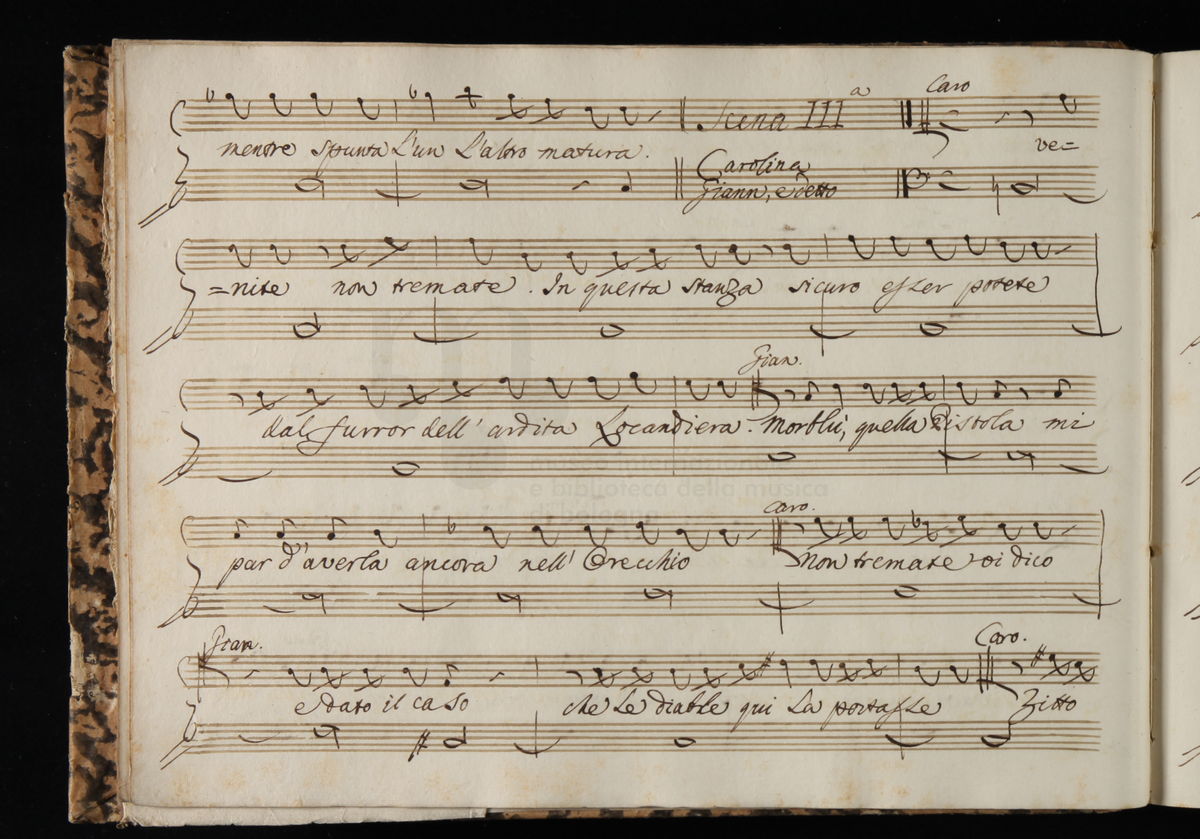 Scena III a Caro
mentre spunta L'un L'altro matura. ve=
Carolina
Giann, e detto
=nite non tremate. In questa stanza sicuro esser potete
Gian.
dal furror dell' ardita Locandiera. Morblù, quella Pistola mi
e biblioteca della musica
di bologna
Caro.
par d'averla ancora nell' Orecchio Non tremate vi dico
Gian. Caro.
e dato il caso che Le diable qui La portasse Zitto